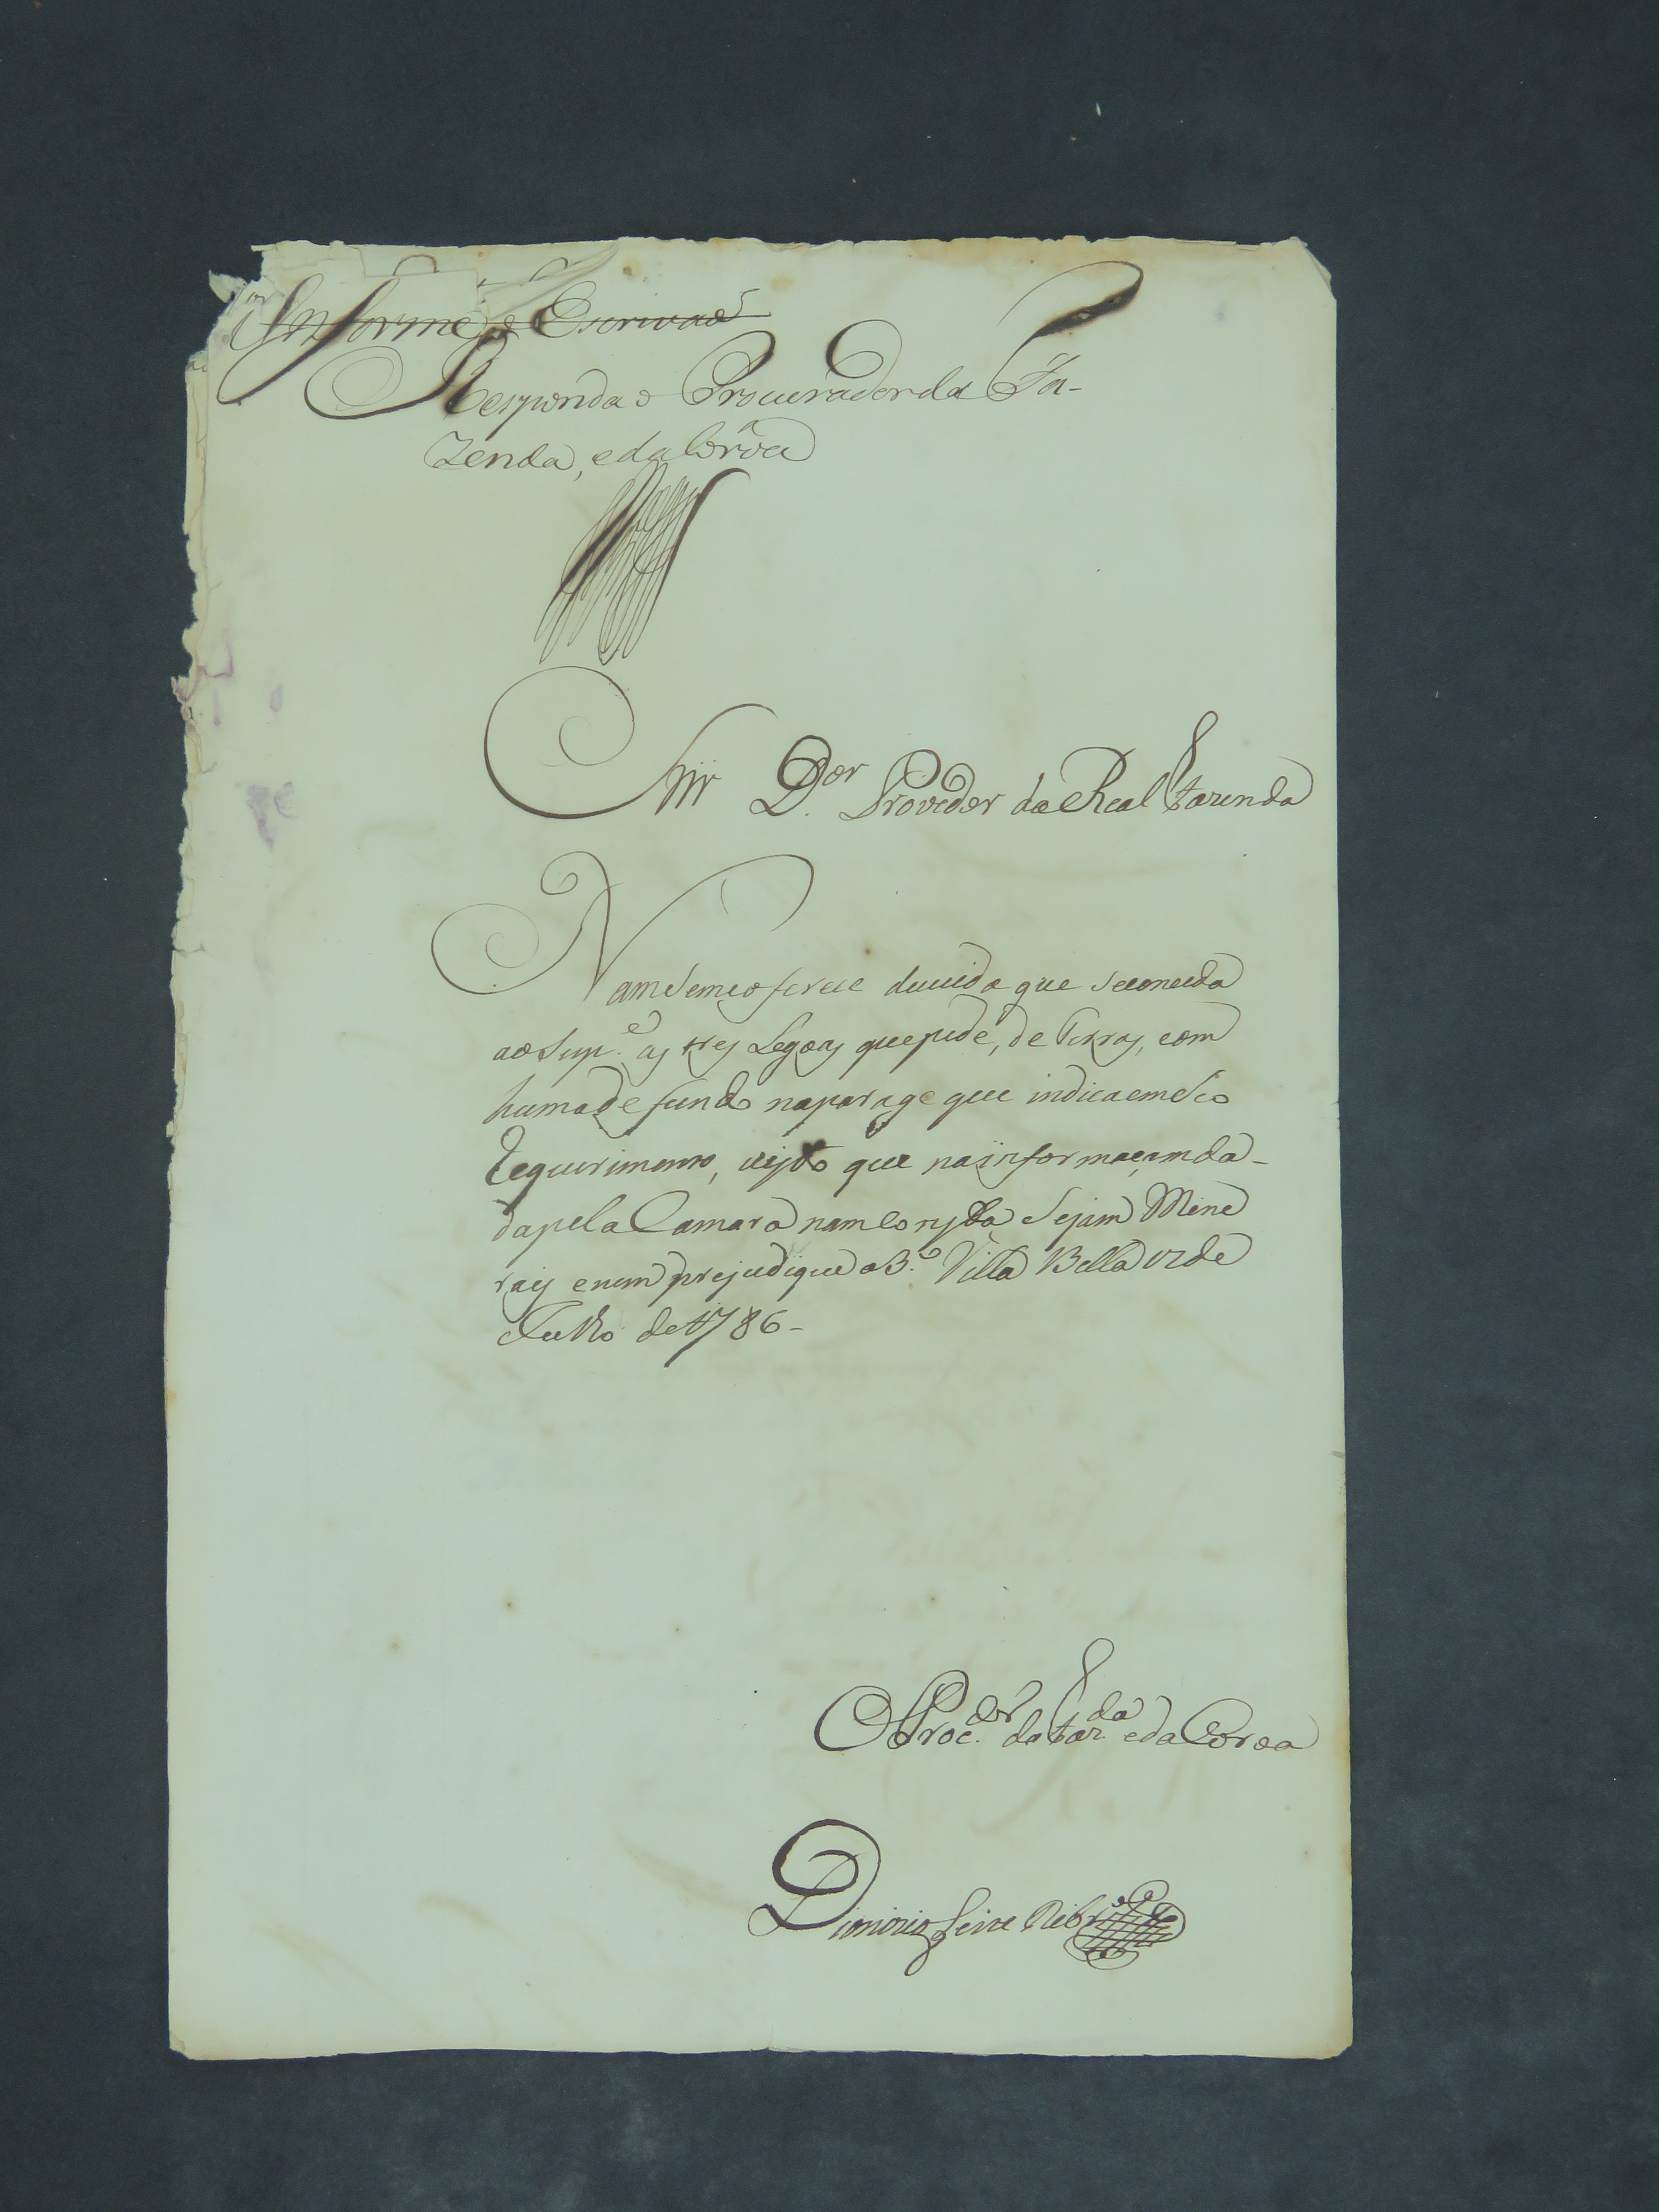 Informe o Escrivaõ
Responda o Procurador da Fa-
zenda, e da Corôa
Snr. D.or Provedor da Real Fazenda
Nam se me oferece duuida que se conceda
ao Sup.e as tres Legoas que pede, de Terras, com
huma de fundo na parage que indica em seo
Requerimento, uisto que na informaçam da-
da pela Camara nam consta sejam Mine
rais e nem prejudique o B.o Villa Bella 12 de
Julho de 1786-
O Proc.dor da Faz.da e da Coroa
Dionizio Feire Ribr.o